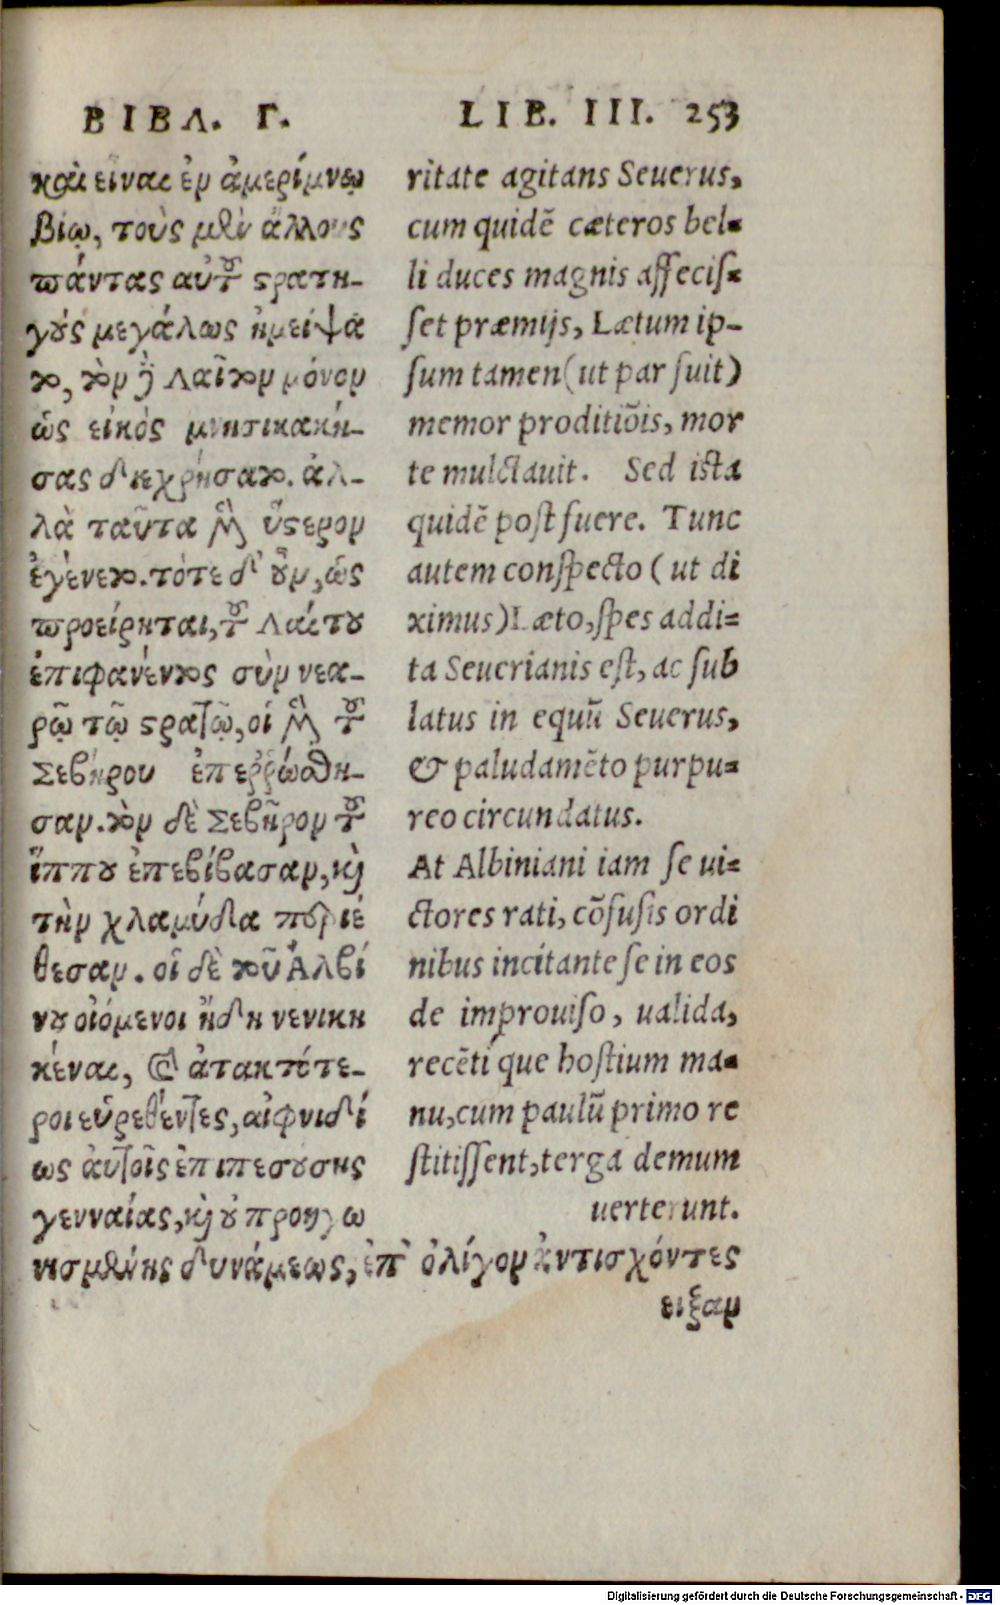 ΒΙΒΛ. Γ.
καὶ εἶναι ἐν ἀμερίμνῳ
βίῳ, τοὺς μὲν ἄλλους
πάντας αὐτοῦ στρατη-
γοὺς μεγάλως ἠμείψα
το, τὸν δὲ Λαῖτον μόνον
ὡς εἰκὸς μνησικακή-
σας διεχρήσατο. ἀλ-
λὰ ταῦτα μὲν ὕστερον
ἐγένετο. τότε δ' οὖν, ὡς
προείρηται, τοῦ Λαίτου
ἐπιφανέντος σὺν νεα-
ρῷ τῷ στρατῷ, οἱ μὲν τοῦ
Σεβήρου ἐπεῤῥώσθη-
σαν. τὸν δὲ Σεβῆρον τοῦ
ἵππου ἐπεβίβασαν, καὶ
τὴν χλαμύδα περιέ
θεσαν. οἱ δὲ τοῦ Ἀλβί
νου οἰόμενοι ἤδη νενικη
κέναι, καὶ ἀτακτότε-
ροι εὑρεθέντες, αἰφνιδί
ως αὐτοῖς ἐπιπεσούσης
γενναίας, καὶ οὐ προηγω
νισμένης δυνάμεως, ἐπ' ὀλίγον ἀντισχόντες
ειξαν
LIB. III. 253
ritate agitans Seuerus,
cum quidẽ cæteros bel=
li duces magnis affecis=
set præmijs, Lætum ip-
sum tamen (ut par fuit)
memor proditiõis, mor
te mulctauit. Sed ista
quidẽ post fuere. Tunc
autem conspecto (ut di
ximus) Læto, spes addi=
ta Seuerianis est, ac sub
latus in equũ Seuerus,
& paludamẽto purpu=
reo circundatus.
At Albiniani iam se ui=
ctores rati, cõfusis ordi
nibus incitante se in eos
de improuiso, ualida,
recẽti que hostium ma=
nu, cum paulũ primo re
stitissent, terga demum
uerterunt.
Digitalisierung gefördert durch die Deutsche Forschungsgemeinschaft - DFG